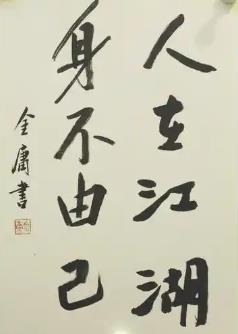 人在江湖
身不由己
金庸書